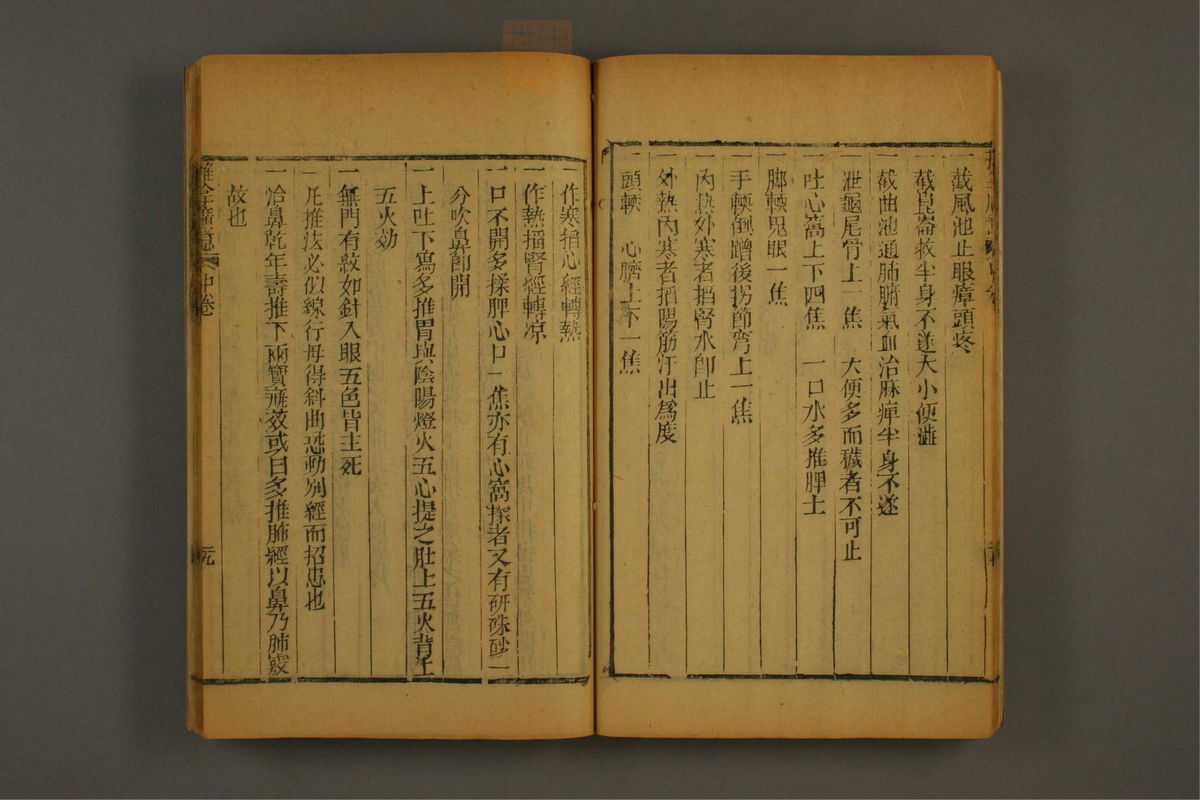 一截風池止眼瘴頭疼
一截崑崙救半身不遂大小便澁
一截曲池通肺腑氣血治麻痺半身不遂
一泄龜尾骨上一焦　大便多而穢者不可止
一吐心窩上下四焦　一口水多推脾土
一脚軟鬼眼一焦
一手軟倒蹭後拐節弯上一焦
一內熱外寒者掐腎水卽止
一外熱內寒者掐陽筋汗出爲度
一頭軟　心臍上下一焦
一作寒掐心經轉熱
一作熱掐腎經轉凉
一口不開多揉脾心口一焦亦有心窩揉者又有研硃砂一
分吹鼻卽開
一上吐下寫多推胃與陰陽燈火五心提之肚上五火背上
五火効
一無門有紋如針入眼五色皆主死
一凡推法必似線行毋得斜曲恐動别經而招患也
一治鼻乾年壽推下兩寶旋效或曰多推肺經以鼻乃肺竅
故也
中卷